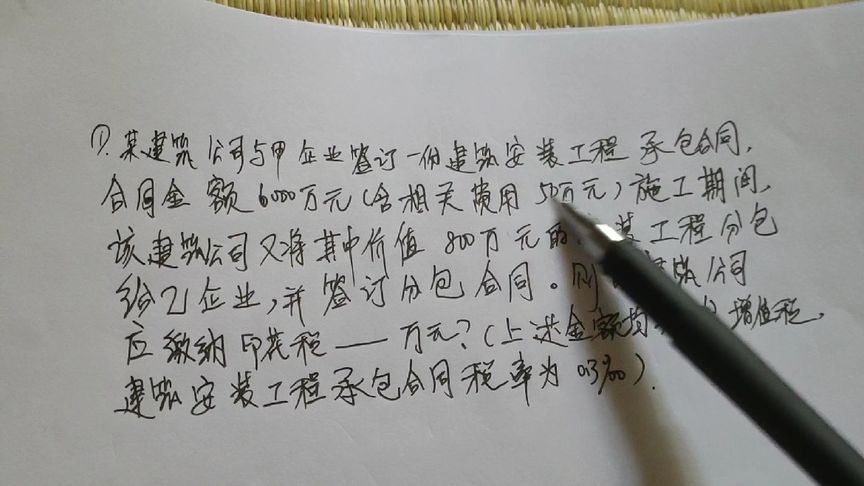 ①.某建筑公司与甲企业签订一份建筑安装工程承包合同,
合同金额6000万元(含相关费用50万元)施工期间,
该建筑公司又将其中价值800万元的装工程分包
给乙企业,并签订分包合同。则建筑公司
应缴纳印花税——万元?(上述金额均增值税,
建筑安装工程承包合同税率为0.3‰).